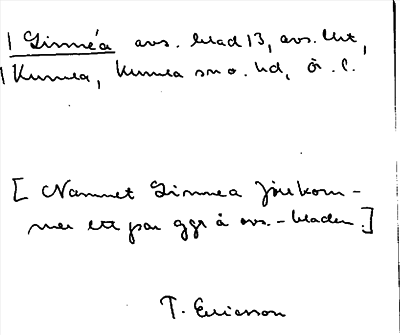 | Linnéa avs. blad 13, avs. Urt,
| Kumla, Kumla sn o. hd, Ö. L.
[ Namnet Linnea förekom-
mer ett par ggr å avs.-bladen.]
T. Ericsson